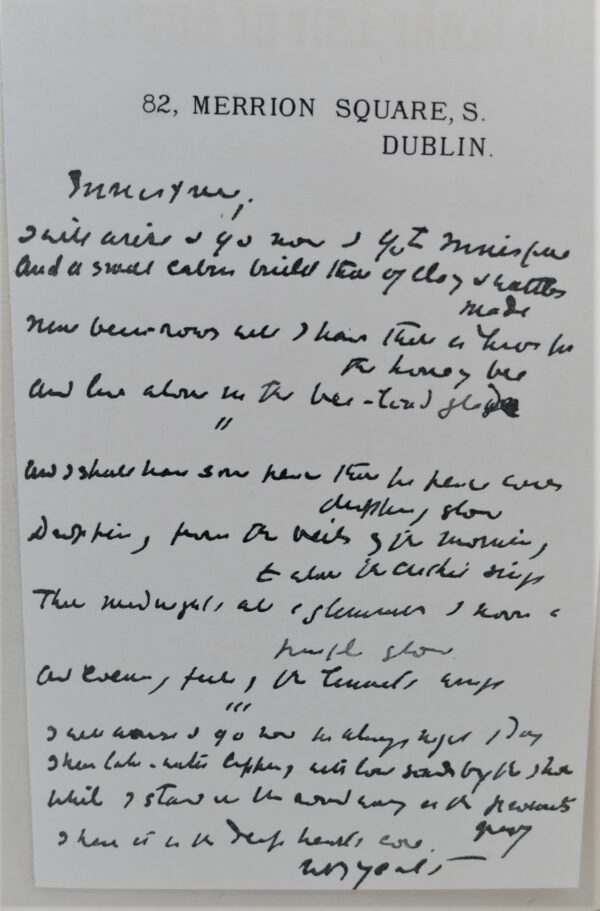 82, MERRION SQUARE, S.
DUBLIN.
Innisfree,
I will arise & go now & go to Innisfree
And a small cabin build there of clay & wattles
made
Nine bean-rows will I have there a hive for
the honey bee
And live alone in the bee-loud glade
"
And I shall have some peace there for peace comes
dropping slow
Dropping from the veils of the morning,
to where the cricket sings
There midnights all a glimmer & noon a
purple glow
And evening full of the linnets wings
'''
I will arise & go now for always night & day
I hear lake-water lapping with low sounds by the shore
While I stand on the roadway or the pavements
grey
I hear it in the deep hearts core.
WB Yeats